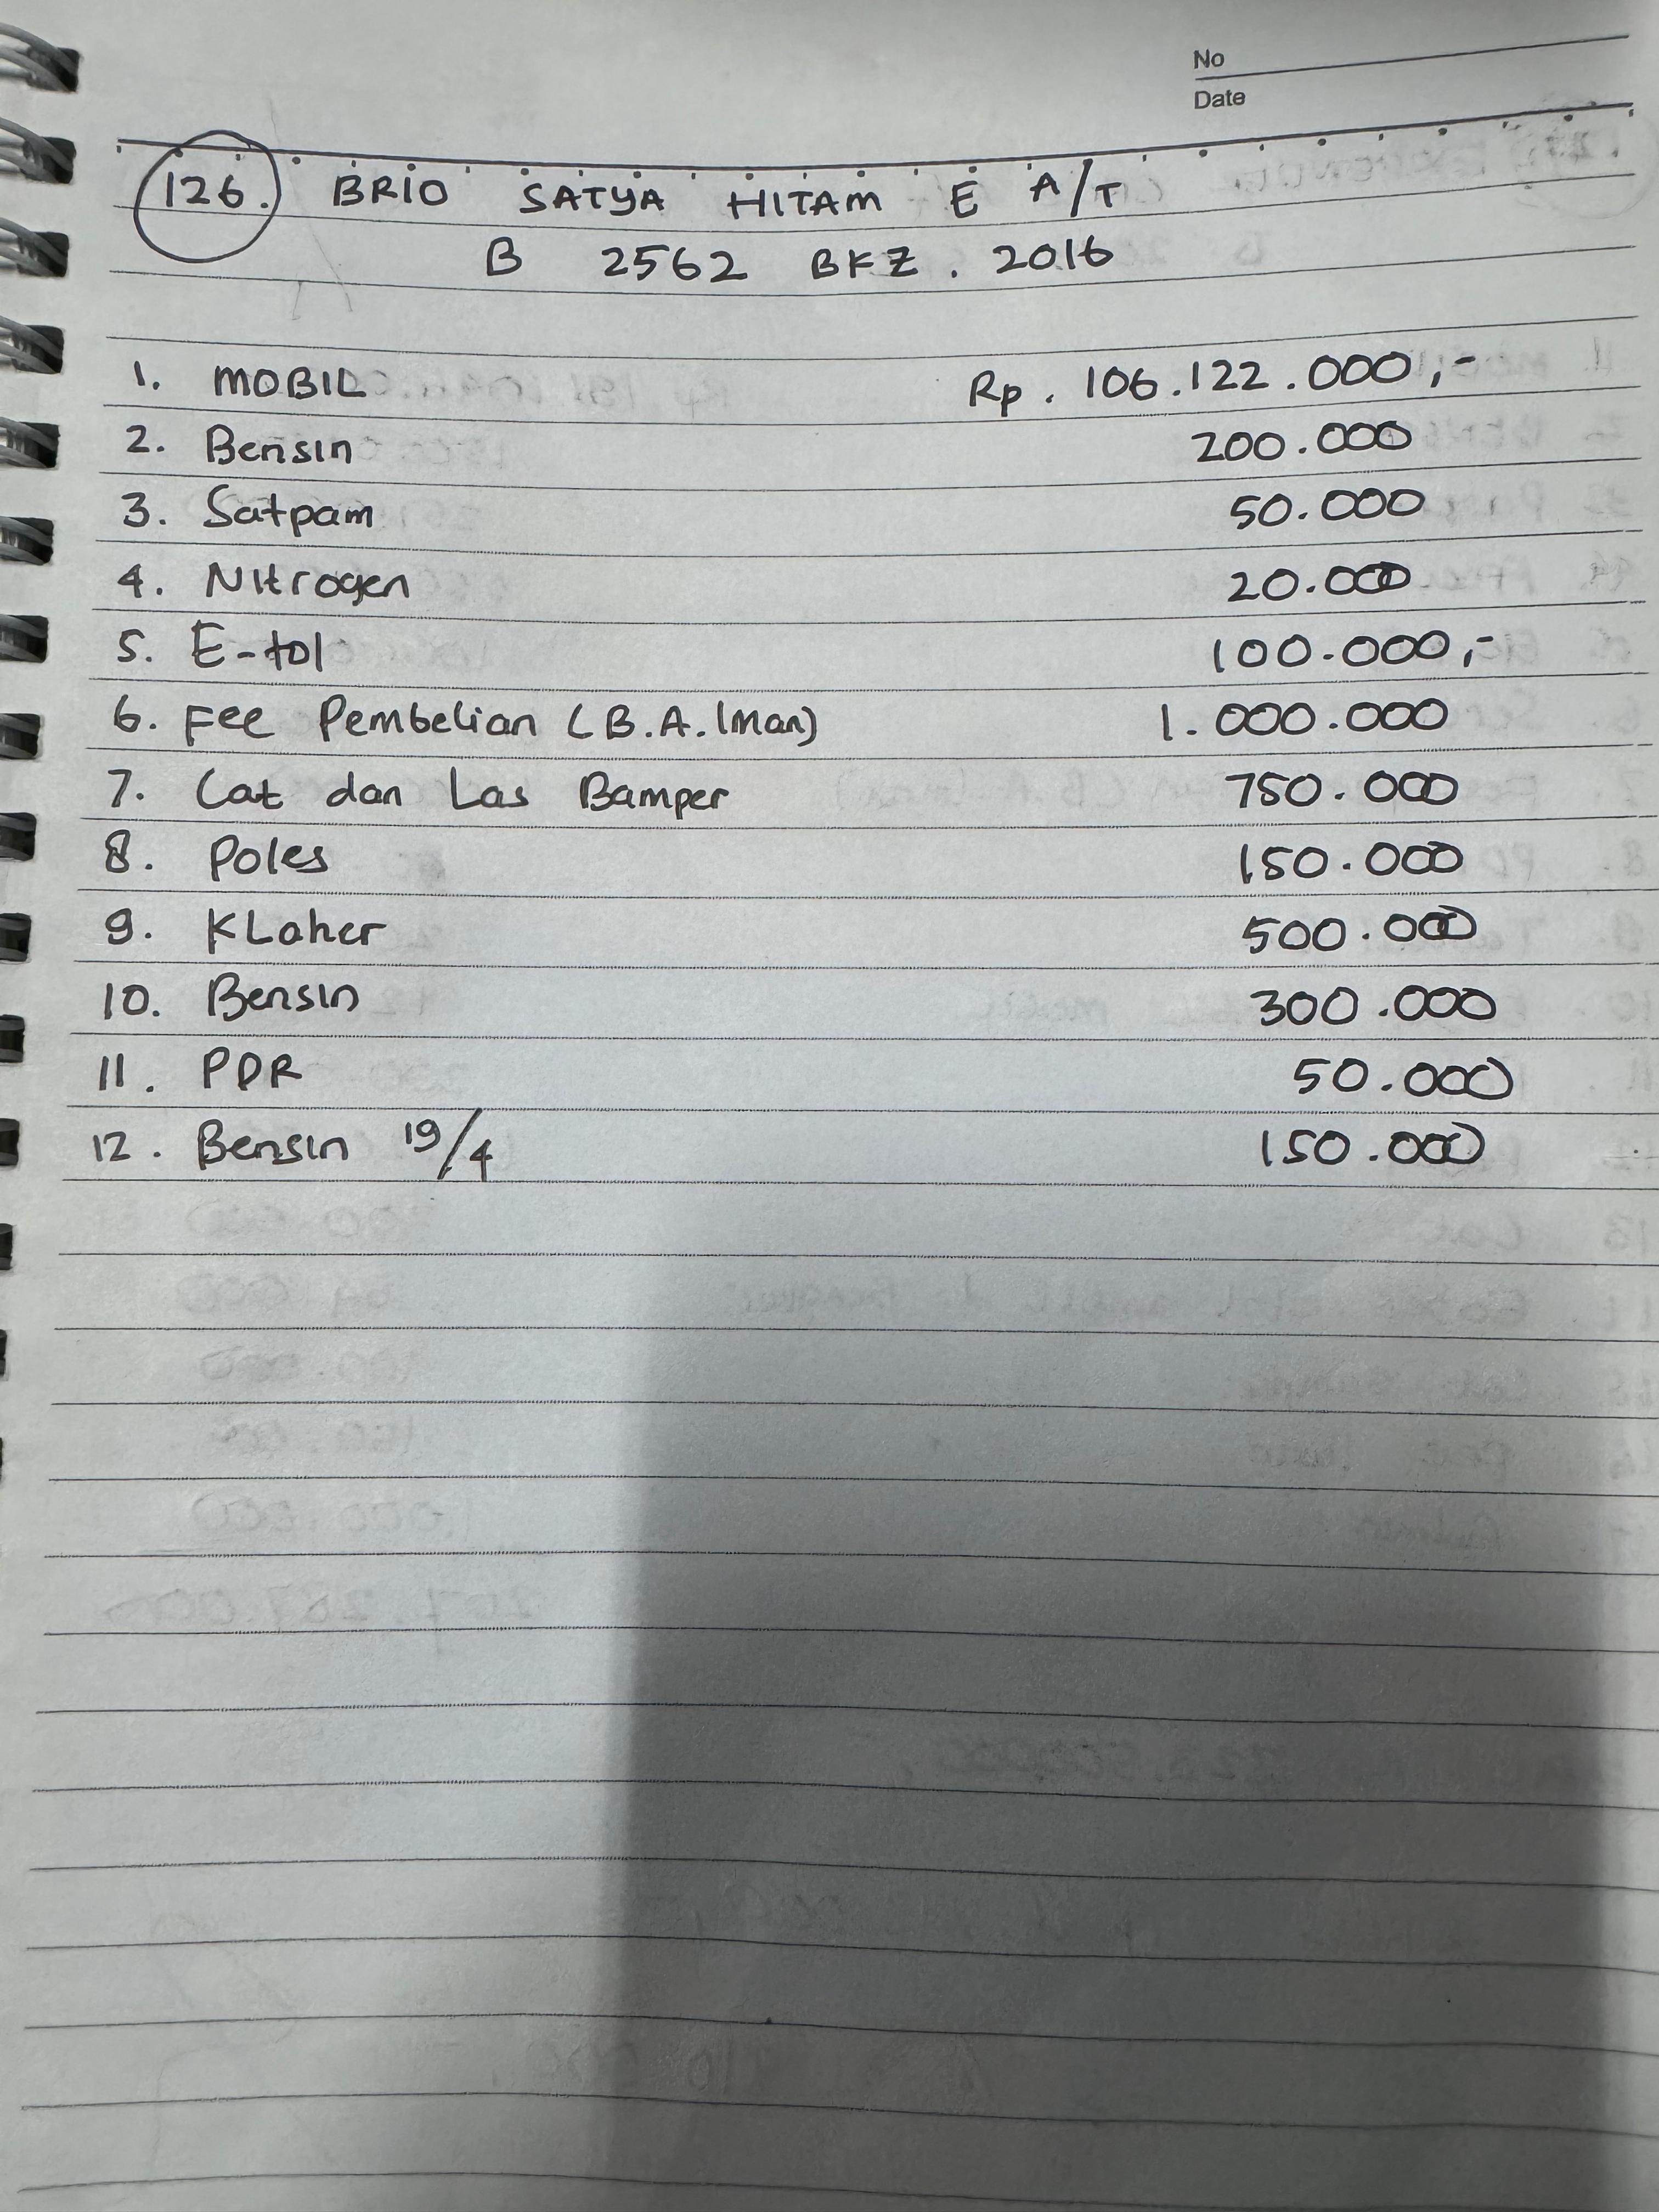 No
Date
126. BRIO SATYA HITAM E A/T
B 2562 BKZ. 2016
1. MOBIL Rp. 106.122.000,-
2. Bensin 200.000
3. Satpam 50.000
4. Nitrogen 20.000
5. E-tol 100.000,-
6. Fee Pembelian (B.A. Iman) 1.000.000
7. Cat dan Las Bamper 750.000
8. Poles 150.000
9. KLaher 500.000
10. Bensin 300.000
11. PDR 50.000
12. Bensin 19/4 150.000